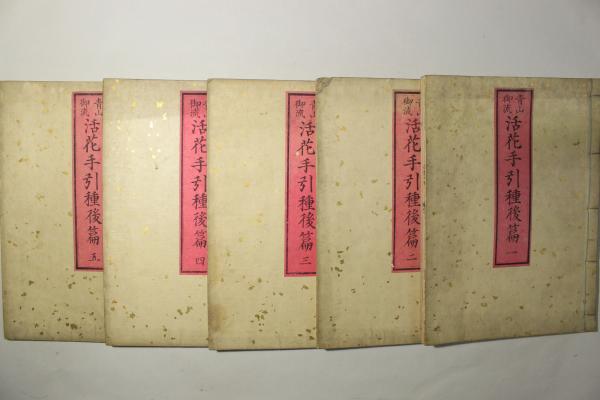 青山御流 活花手引種後篇 一
青山御流 活花手引種後篇 二
青山御流 活花手引種後篇 三
青山御流 活花手引種後篇 四
青山御流 活花手引種後篇 五